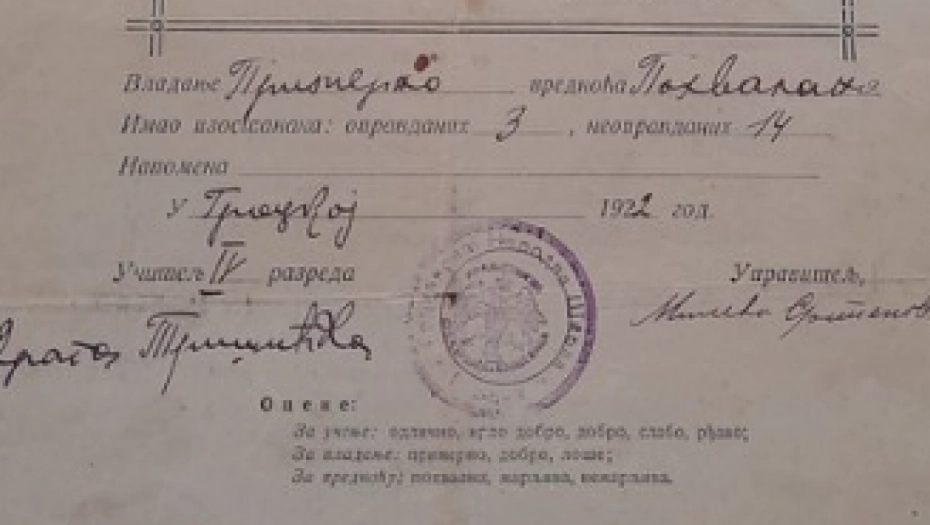 Владање Примерно вредноћа Похвална
Имао изостанака: оправданих 3, неоправданих 14
Напомена
У Гроцкој 1922 год.
Учитељ IV разреда Управитељ,
Оцене:
За учење: одлично, врло добро, добро, слабо, рђаво;
За владање: примерно, добро, лоше;
За вредноћу: похвална, марљива, немарљива.